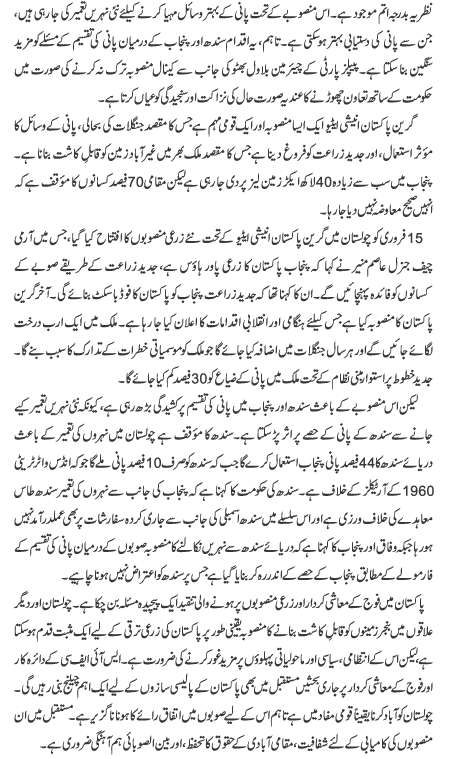 نظریہ بدرجہ اتم موجود ہے۔ اس منصوبے کے تحت پانی کے بہتر وسائل مہیا کرنے کیلئے نئی نہریں تعمیر کی جا رہی ہیں،
جن سے پانی کی دستیابی بہتر ہو سکتی ہے۔ تاہم، یہ اقدام سندھ اور پنجاب کے درمیان پانی کی تقسیم کے مسئلے کو مزید
سنگین بنا سکتا ہے۔ پیپلز پارٹی کے چیئرمین بلاول بھٹو کی جانب سے کینال منصوبہ ترک نہ کرنے کی صورت میں
حکومت کے ساتھ تعاون چھوڑنے کا عندیہ صورت حال کی نزاکت اور سنجیدگی کو عیاں کرتا ہے۔
گرین پاکستان انیشی ایٹیو ایک ایسا منصوبہ اور ایک قومی مہم ہے جس کا مقصد جنگلات کی بحالی، پانی کے وسائل کا
مؤثر استعمال، اور جدید زراعت کو فروغ دینا ہے جس کا مقصد ملک بھر میں غیر آباد زمین کو قابلِ کاشت بنانا ہے۔
پنجاب میں سب سے زیادہ 40 لاکھ ایکڑ زمین لیز پر دی جا رہی ہے لیکن مقامی 70 فیصد کسانوں کا مؤقف ہے کہ
انہیں صحیح معاوضہ نہیں دیا جا رہا۔
15 فروری کو چولستان میں گرین پاکستان انیشی ایٹیو کے تحت نئے زرعی منصوبوں کا افتتاح کیا گیا، جس میں آرمی
چیف جنرل عاصم منیر نے کہا کہ پنجاب پاکستان کا زرعی پاور ہاؤس ہے، جدید زراعت کے طریقے صوبے کے
کسانوں کو فائدہ پہنچائیں گے۔ ان کا کہنا تھا کہ جدید زراعت پنجاب کو پاکستان کا فوڈ باسکٹ بنائے گی۔ آخر گرین
پاکستان کا منصوبہ کیا ہے جس کیلئے ہنگامی اور انقلابی اقدامات کا اعلان کیا جا رہا ہے۔ ملک میں ایک ارب درخت
لگائے جائیں گے اور ہر سال جنگلات میں اضافہ کیا جائے گا جو ملک کو موسمیاتی خطرات کے تدارک کا سبب بنے گا۔
جدید خطوط پر استوار مبنی نظام کے تحت ملک میں پانی کے ضیاع کو 30 فیصد کم کیا جائے گا۔
لیکن اس منصوبے کے باعث سندھ اور پنجاب میں پانی کی تقسیم پر کشیدگی بڑھ رہی ہے، کیونکہ نئی نہریں تعمیر کیے
جانے سے سندھ کے پانی کے حصے پر اثر پڑ سکتا ہے۔ سندھ کا مؤقف ہے چولستان میں نہروں کی تعمیر کے باعث
دریائے سندھ کا 44 فیصد پانی پنجاب استعمال کرے گا جب کہ سندھ کو صرف 10 فیصد پانی ملے گا جو کہ انڈس واٹر ٹریٹی
1960 کے آرٹیکلز کے خلاف ہے۔ سندھ کی حکومت کا کہنا ہے کہ پنجاب کی جانب سے نہروں کی تعمیر سندھ طاس
معاہدے کی خلاف ورزی ہے اور اس سلسلے میں سندھ اسمبلی کی جانب سے جاری کردہ سفارشات پر بھی عملدرآمد نہیں
ہو رہا جبکہ وفاق اور پنجاب کا کہنا ہے کہ دریائے سندھ سے نہریں نکالنے کا منصوبہ صوبوں کے درمیان پانی کی تقسیم کے
فارمولے کے مطابق پنجاب کے حصے کے اندر رہ کر بنایا گیا ہے جس پر سندھ کو اعتراض نہیں ہونا چاہیے۔
پاکستان میں فوج کے معاشی کردار اور زرعی منصوبوں پر ہونے والی تنقید ایک پیچیدہ مسئلہ بن چکا ہے۔ چولستان اور دیگر
علاقوں میں بنجر زمینوں کو قابلِ کاشت بنانے کا منصوبہ یقینی طور پر پاکستان کی زرعی ترقی کے لیے ایک مثبت قدم ہو سکتا
ہے، لیکن اس کے انتظامی، سیاسی اور ماحولیاتی پہلوؤں پر مزید غور کرنے کی ضرورت ہے۔ ایس آئی ایف سی کے دائرہ کار
اور فوج کے معاشی کردار پر جاری بحثیں مستقبل میں بھی پاکستان کے پالیسی سازوں کے لیے ایک اہم چیلنج بنی رہیں گی۔
چولستان کو آباد کرنا یقیناً قومی مفاد میں ہے تاہم اس کے لیے صوبوں میں اتفاق رائے کا ہونا ناگزیر ہے۔ مستقبل میں ان
منصوبوں کی کامیابی کے لئے شفافیت، مقامی آبادی کے حقوق کا تحفظ، اور بین الصوبائی ہم آہنگی ضروری ہے۔